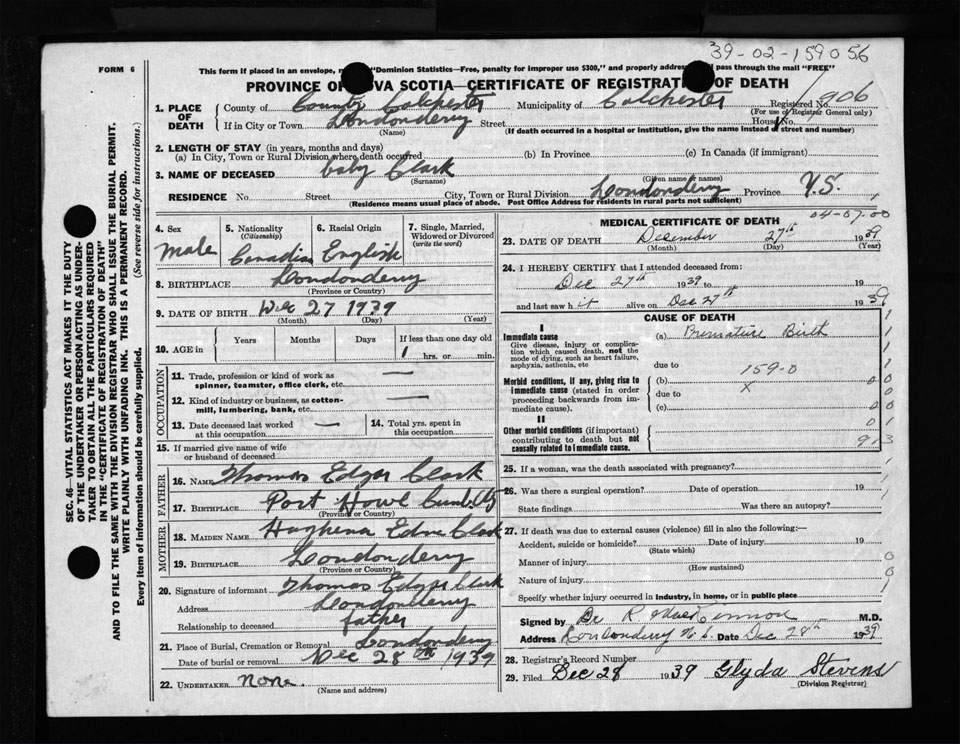 39-02-159056
FORM 6
This form if placed in an envelope, "Dominion Statistics—Free, penalty for improper use $300," and properly address pass through the mail "FREE"
PROVINCE OF VA SCOTIA—CERTIFICATE OF REGISTRAT OF DEATH
1. PLACE OF DEATH
County of County Colchester Municipality of Colchester Registered No. 1906
(For use of Registrar General only)
If in City or Town Londonderry Street House No.
(Name) (If death occurred in a hospital or institution, give the name instead of street and number)
2. LENGTH OF STAY (in years, months and days)
(a) In City, Town or Rural Division where death occurred (b) In Province (c) In Canada (if immigrant)
3. NAME OF DECEASED baby Clark
(Surname) (Given name or names)
RESIDENCE No Street City, Town or Rural Division Londonderry Province N.S.
(Residence means usual place of abode. Post Office Address for residents in rural parts not sufficient)
SEC. 46—VITAL STATISTICS ACT MAKES IT THE DUTY
OF THE UNDERTAKER OR PERSON ACTING AS UNDER-
TAKER TO OBTAIN ALL THE PARTICULARS REQUIRED
IN THE "CERTIFICATE OF REGISTRATION OF DEATH"
AND TO FILE THE SAME WITH THE DIVISION REGISTRAR WHO SHALL ISSUE THE BURIAL PERMIT.
WRITE PLAINLY WITH UNFADING INK. THIS IS A PERMANENT RECORD.
Every item of information should be carefully supplied. (See reverse side for instructions.)
4. Sex
male
5. Nationality
(Citizenship)
Canadian
6. Racial Origin
English
7. Single, Married,
Widowed or Divorced
(write the word)
8. BIRTHPLACE Londonderry
(Province or Country)
9. DATE OF BIRTH Dec 27 1939
(Month) (Day) (Year)
10. AGE in Years Months Days If less than one day old
1 hrs. or min.
OCCUPATION
11. Trade, profession or kind of work as
spinner, teamster, office clerk, etc. —
12. Kind of industry or business, as cotton-
mill, lumbering, bank, etc. —
13. Date deceased last worked
at this occupation —
14. Total yrs. spent in
this occupation
15. If married give name of wife
or husband of deceased
FATHER
16. NAME Thomas Edgar Clark
17. BIRTHPLACE Port Howe Cumb. Cty
(Province or Country)
MOTHER
18. MAIDEN NAME Edna Clark
19. BIRTHPLACE Londonderry
(Province or Country)
20. Signature of informant Thomas Edgar Clark
Address Londonderry
Relationship to deceased father
21. Place of Burial, Cremation or Removal Londonderry
Date of burial or removal Dec 28th 1939
22. UNDERTAKER none.
(Name and address)
04-07-00
MEDICAL CERTIFICATE OF DEATH
23. DATE OF DEATH December 27th 1939
(Month) (Day) (Year)
24. I HEREBY CERTIFY that I attended deceased from:
Dec 27th 1939 to 19
and last saw h it alive on Dec 27th 1939
CAUSE OF DEATH
I
Immediate cause
Give disease, injury or complica-
tion which caused death, not the
mode of dying, such as heart failure,
asphyxia, asthenia, etc
(a) Premature Birth
due to
159-0
Morbid conditions, if any, giving rise to
immediate cause (stated in order
proceeding backwards from im-
mediate cause).
(b) X
due to
(c)
II
Other morbid conditions (if important)
contributing to death but not
causally related to immediate cause.
913
25. If a woman, was the death associated with pregnancy?
26. Was there a surgical operation? Date of operation 19
State findings Was there an autopsy?
27. If death was due to external causes (violence) fill in also the following:—
Accident, suicide or homicide? Date of injury 19
(State which)
Manner of injury
(How sustained)
Nature of injury
Specify whether injury occurred in industry, in home, or in public place
Signed by Dr R MacKinnon M.D.
Address Londonderry N.S. Date Dec 28th 1939
28. Registrar's Record Number
29. Filed Dec 28 1939 Glyda Stevens
(Division Registrar)